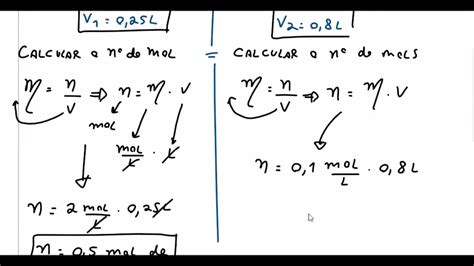 V₁ = 0,25L
CALCULAR o nº de mol
η = n/V ⇒ n = η . V
mol
mol/L . L
n = 2 mol/L . 0,25L
n = 0,5 mol de
=
V₂ = 0,8L
CALCULAR o nº de mols
η = n/V ⇒ n = η . V
n = 0,1 mol/L . 0,8L